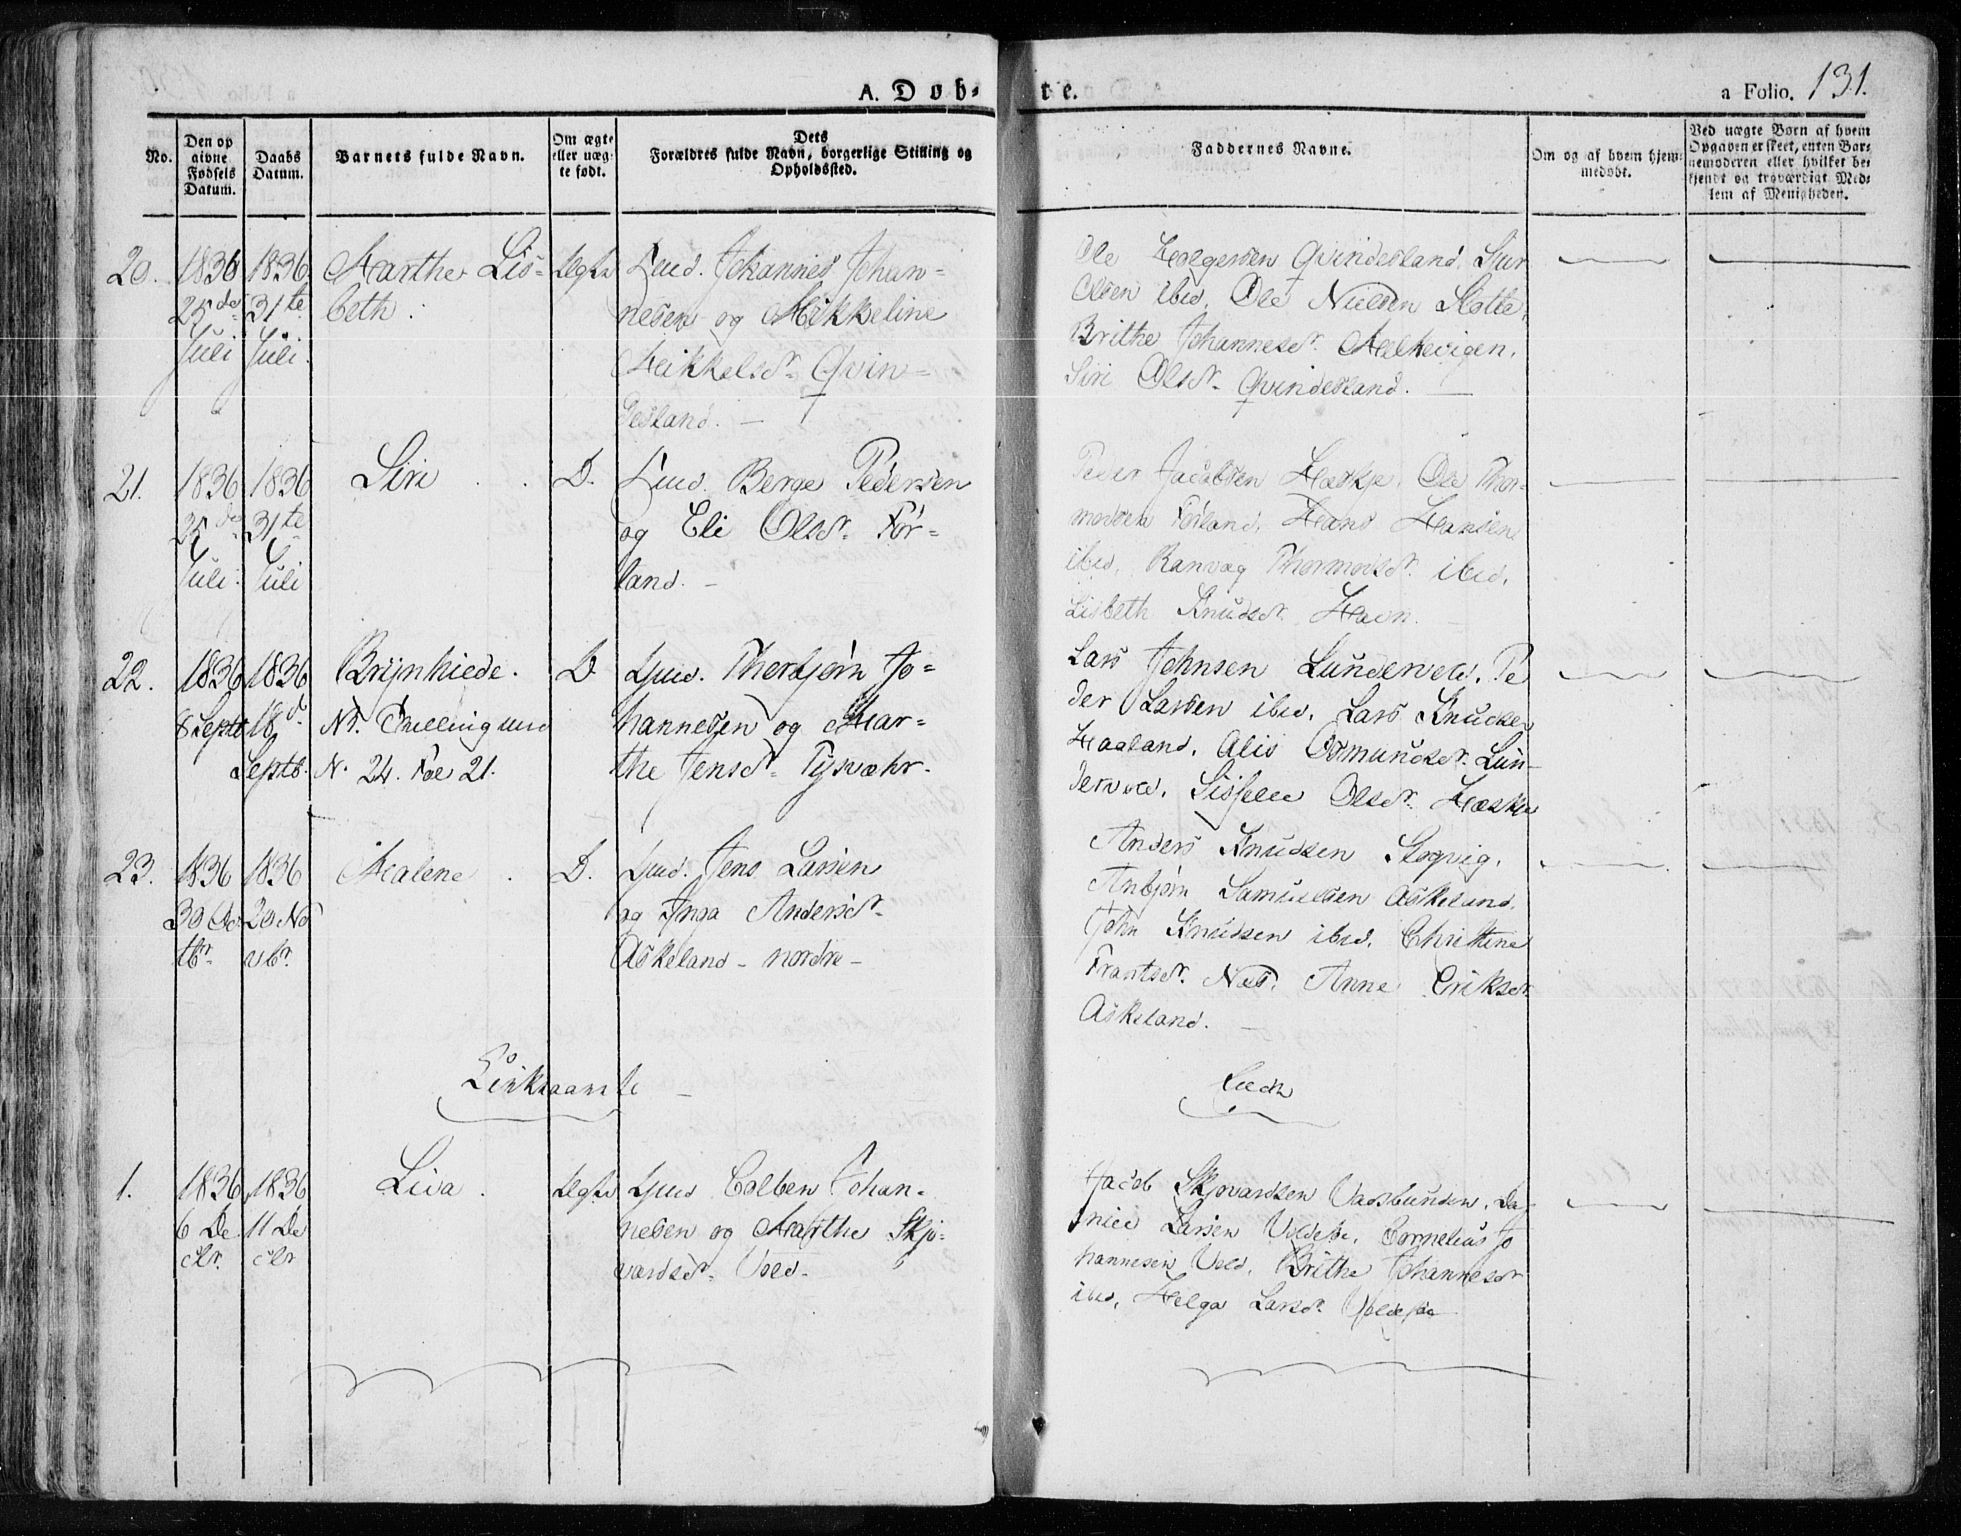 A. Døb- te. a Folio. 131.
No.
Den op
givne
Fødsels
Datum.
Daabs
Datum.
Barnets fulde Navn.
Om ægte
eller uæg-
te født.
Dets
Forældres fulde Navn, borgerlige Stilling og
Opholdssted.
Faddernes Navne.
Om og af hvem hjem-
medøbt.
Ved uægte Børn af hvem
Opgaven er skeet, enten Bar-
nemoderen eller hvilket be-
kjendt og troværdigt Med-
lem af Menigheden.
20.
1836
25de
Juli
1836
31te
Juli.
Marthe Lis-
beth.
Ægte
Johannes Johan-
nesen og Mikkeline
Mikkelsdr. Qvin-
desland.
Ole Holgersen Qvindesland, Siur
Olsen ibid. Ole Nielsen Slotte,
Brithe Johannesdr. Melkevigen,
Siri Olsdr. Qvindesland.
21.
1836
25de
Juli.
1836
31te
Juli
Siri
D.
Berge Pedersen
og Eli Olsdr. Før-
land.
Peder Jacobsen Hæskje, Ole Thor-
modsen Førland, Hans Hansen
ibid, Ranvæg Thormodsdr. ibid,
Lisbeth Knudsdr. Havn.
22.
1836
8 Septb
1836
18d.
Septb.
Brynhiede.
Nt. Tvilling med
N. 24. Fol 21.
D.
Gmd. Thorbjørn Jo-
hannesen og Mar-
the Jensdr. Tysvæhr.
Lars Johnsen Lunderved, Pe
der Larsen ibid, Lars Knudsen
Haaland, Alis Osmundsdr. Lun-
derved, Sisselle Olsdr. Hæskje
23.
1836
30 Oc
tbr.
1836
20 No
vbr.
Malene
D.
Gmd. Jens Larsen
og Inga Andersdr.
Askeland - nordre -
Anders Knudsen Skogvig,
Anbjørn Samuelsen Askeland,
John Knudsen ibid, Christine
Frantsdr. Næs, Anne Eriksdr.
Askeland.
1.
1836
6 De
cbr.
1836
11 De
cbr
Liva.
Ægte
Gmd Colben Johan-
nesen og Marthe Skjo-
vardsdr. Vold.
Jacob Skjovardsen Vadsbunden, Da
niel Larsen, Cornelius Jo
hannesen Vold, Brithe Johannesdr
ibid, Helga Larsdr.